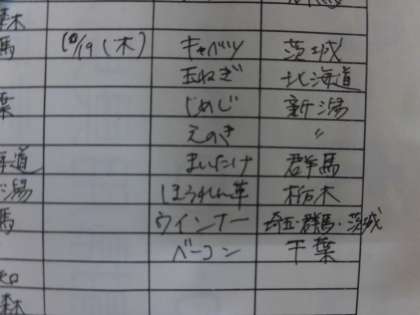 森
馬 10/19(木) キャベツ 茨城
玉ねぎ 北海道
葉 しめじ 新潟
えのき 〃
海道 まいたけ 群馬
潟 ほうれん草 栃木
馬 ウインナー 埼玉・群馬・茨城
ベーコン 千葉
知
森